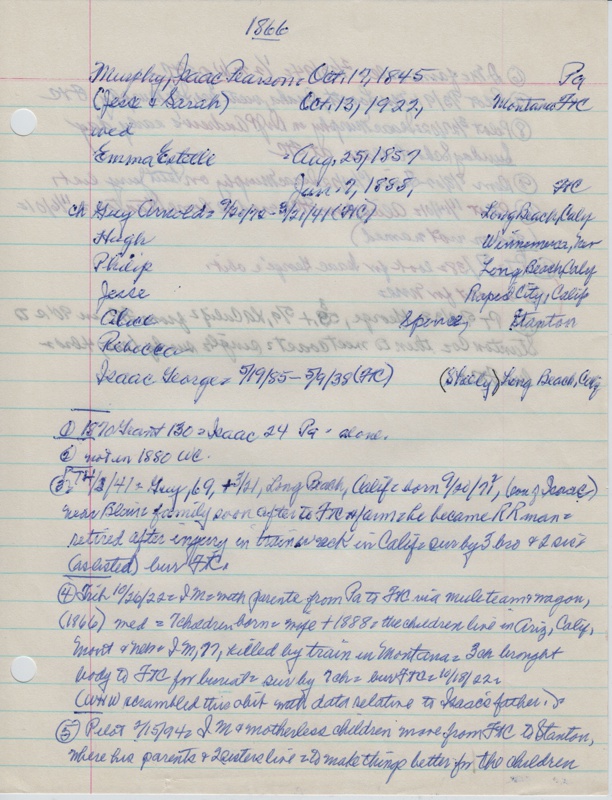 1866
Murphy, Isaac Pearson = Oct. 17, 1845 Pa
(Jesse & Sarah) Oct. 13, 1922, Montana FtC
wed
Emma Estelle = Aug. 25, 1857
Jan. 7, 1888, FtC
ch Guy Arnold = 9/20/72 - 3/21/41 (FtC) Long Beach, Calif
Hugh Winnemucca, Nev
Philip Long Beach, Calif
Jesse Rapid City, Calif
Alice Spence, Stanton
Rebecca
Isaac George = 5/19/85 - 5/9/38 (FtC) Long Beach, City
① 1870 Grant 130 = Isaac 24 Pa - alone.
② not in 1880 WC.
③ 4/3/41 = Guy, 69, + 3/21, Long Beach, Calif = born 9/20/72, (son of Isaac)
near Blair = family soon after to FtC & farm = he became RR man =
retired after injury in train wreck in Calif = sur by 3 bro & 2 sis
(as listed) bur FtC.
④ Trib 10/26/22 = I M = with parents from Pa to FtC via mule team & wagon,
(1866) wed = 7 children born = wife + 1888 = the children live in Ariz, Calif,
Mont & Neb = I M, 77, killed by train in Montana = 3 ch brought
body to FtC for burial = sur by 7 ch = bur FtC = 10/18/22.
(WHW scrambled this obit with data relative to Isaac's father.)
⑤ Pilot 2/15/94 = I M & motherless children move from FtC to Stanton,
where his parents & 2 sisters live = to make things better for the children